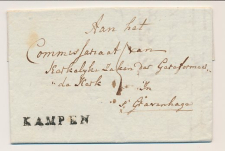 Aan het
Commissariaat van
Kerkelyke Zaken der Gereformeer
de Kerk
In
's Gravenhage
KAMPEN